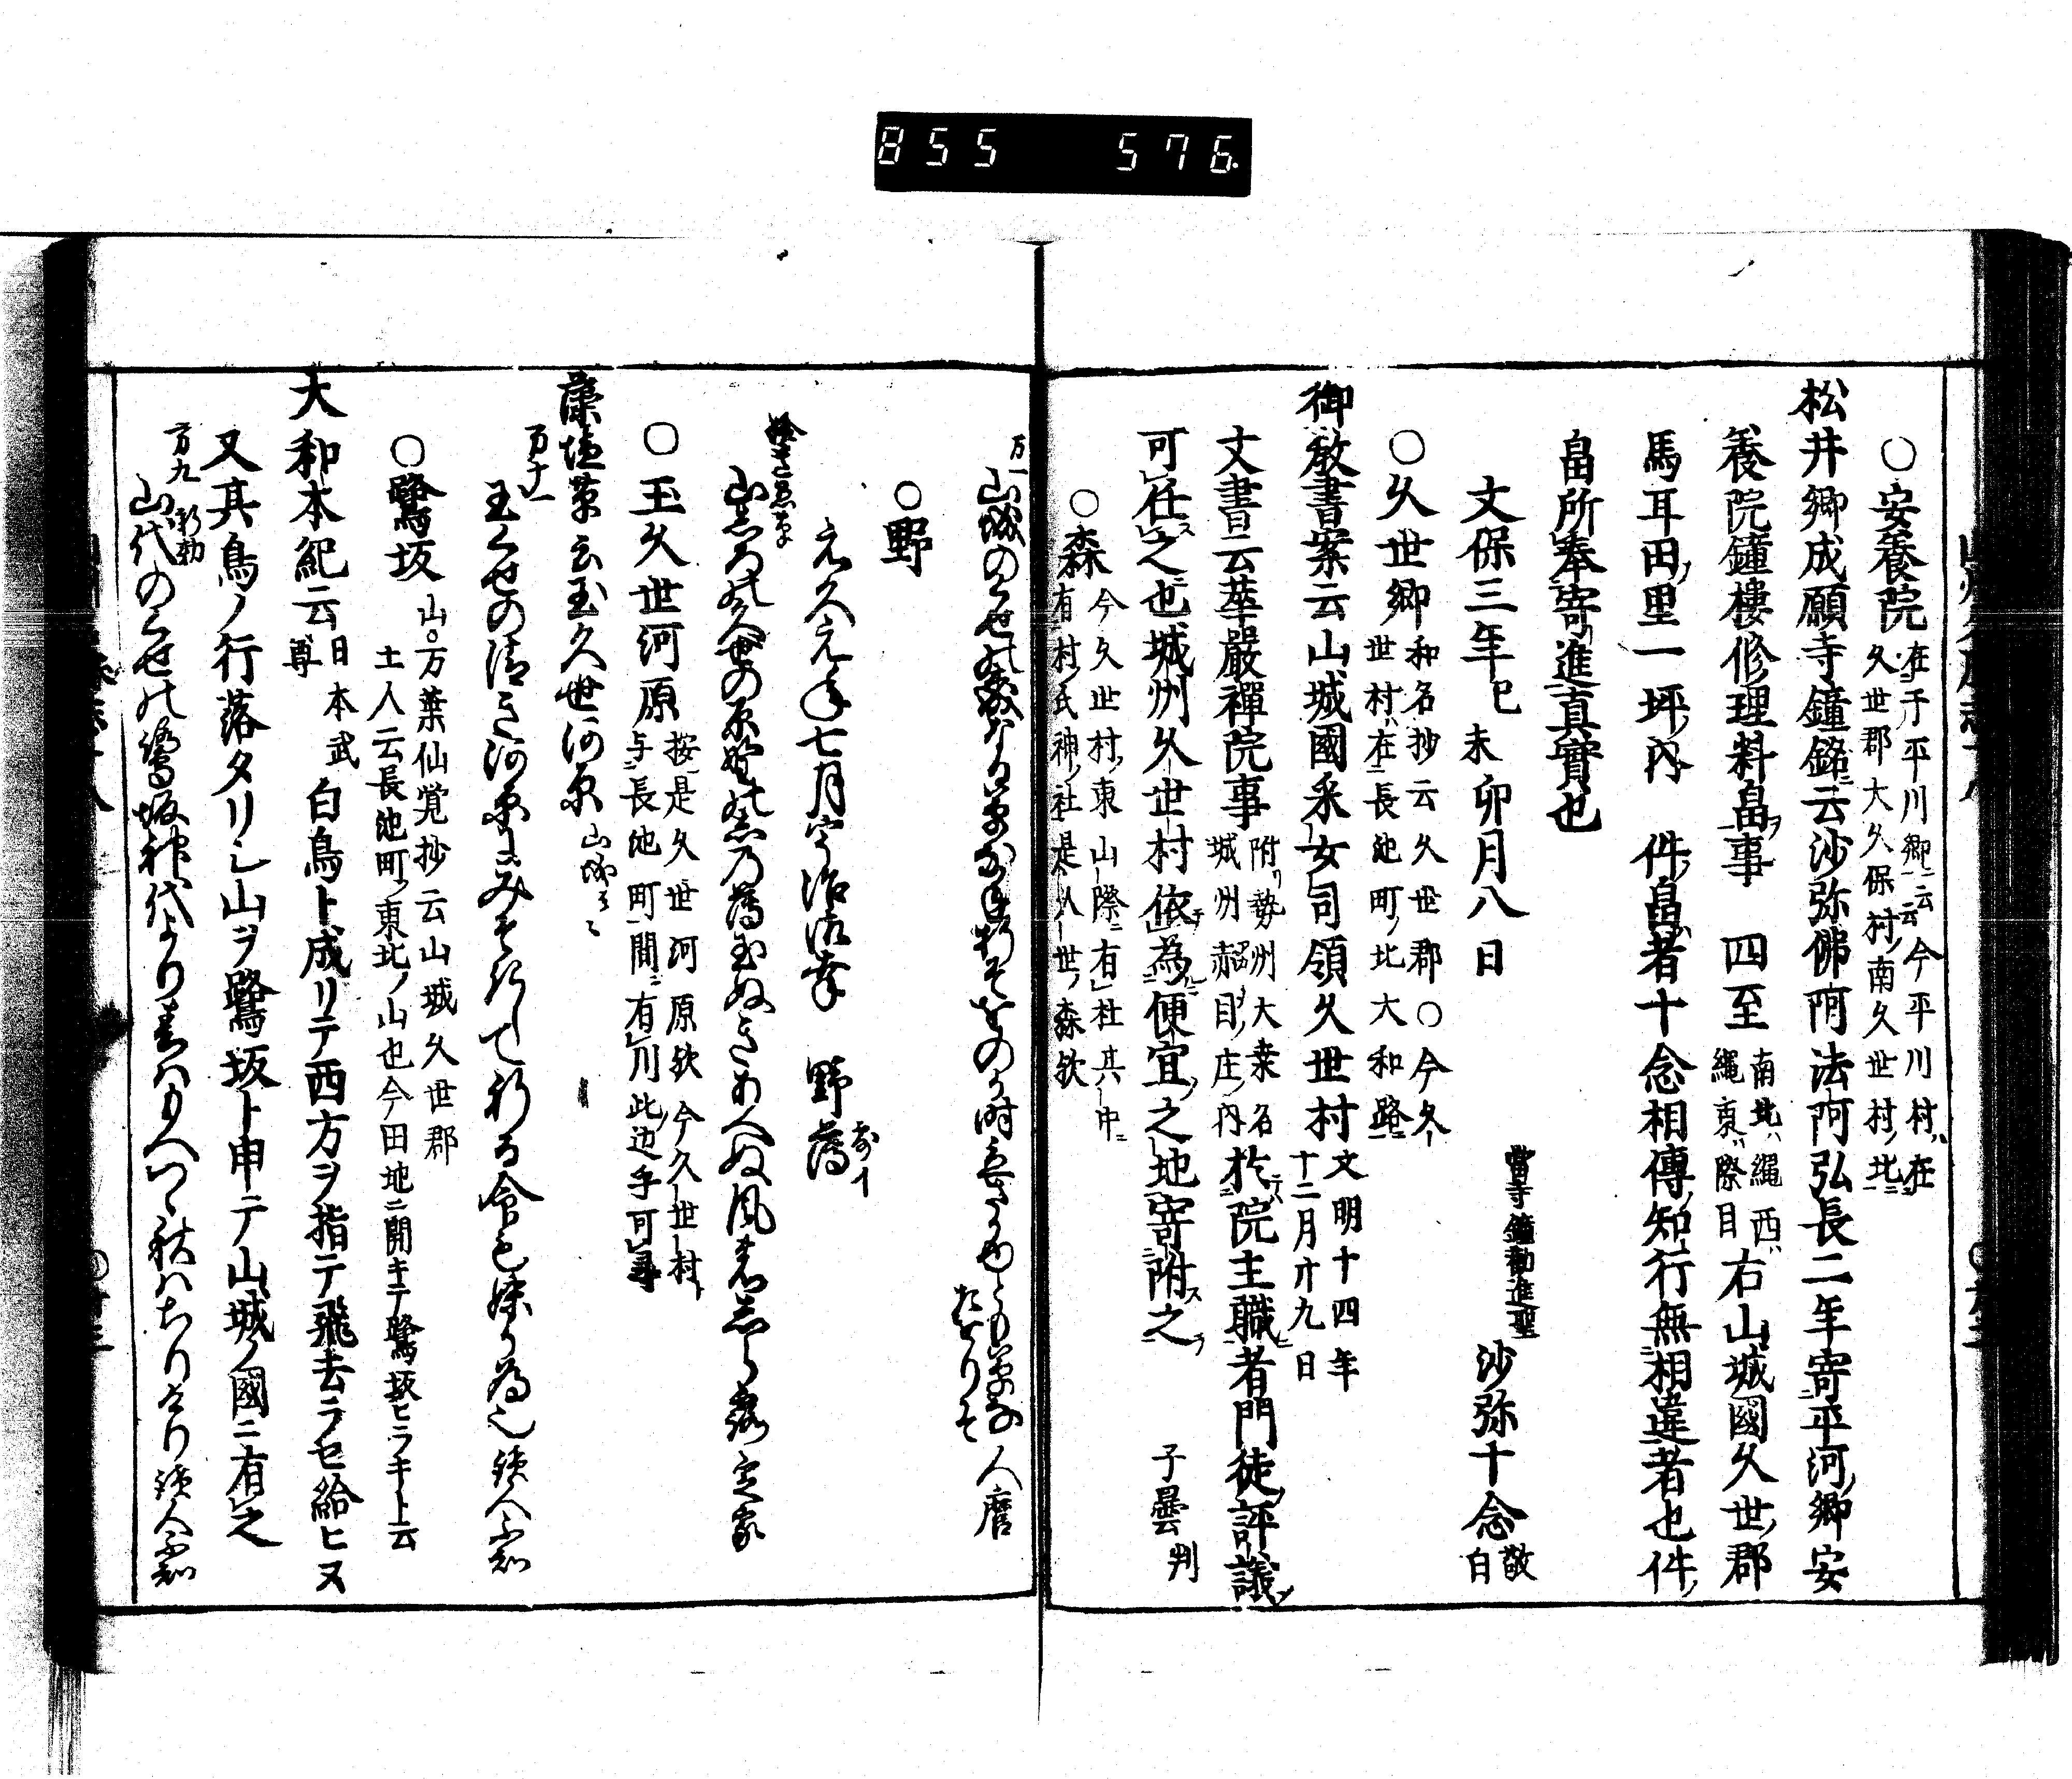 855 576
○安養院 在于平川郷云云今平川村ハ在
久世郡大久保村ノ南久世村ノ北ニ
松井郷成願寺鐘銘云沙弥佛阿法阿弘長二年寄平河郷安
養院鐘樓修理料畠事 四至 南北ハ縄西ハ
縄東ハ際目 右山城國久世郡
馬耳田ノ里一坪ノ内 件畠者十念相傳知行無相違者也件ノ
畠所奉寄進真實也
文保三年己未卯月八日
當寺鐘勧進聖 沙弥十念 敬白
○久世郷 和名抄云久世郡○今久
世村ハ在長池町ノ北大和路ニ
御教書案云山城國采女司領久世村 文明十四年
十二月廿九日
文書云華嚴禪院事 附勢州大桒名
城州赤目ノ庄ノ内 於院主職者門徒評議
可任之也城州久世村依為便宜之地寄附之 子曇 判
○森 今久世村ノ東山際有社其中ニ
有村ノ氏神ノ社是久世ノ森欤
万一
山城のくせの
人麿
○野
元久元年七月宇治御幸 野薄
定家
○玉久世河原 按是久世河原欤今久世村ト
与長池町間ニ有川此辺乎可尋
藻塩草云玉久世河原 山城
万十一
玉くせの清き河原にみそきして祈る命も妹か為也 読人不知
○鷺坂 山○万葉仙覚抄云山城久世郡
土人云長池町ノ東北ノ山也今田地ニ開キテ鷺坂ヒラキト云
大和本紀云 日本武
尊 白鳥ト成リテ西方ヲ指テ飛去ラセ給ヒヌ
又其鳥ノ行落タリシ山ヲ鷺坂ト申テ山城ノ國ニ有之
万九 新勅
山代のくせの鷺坂神代より春ハもへつゝ秋ハちりけり 読人不知